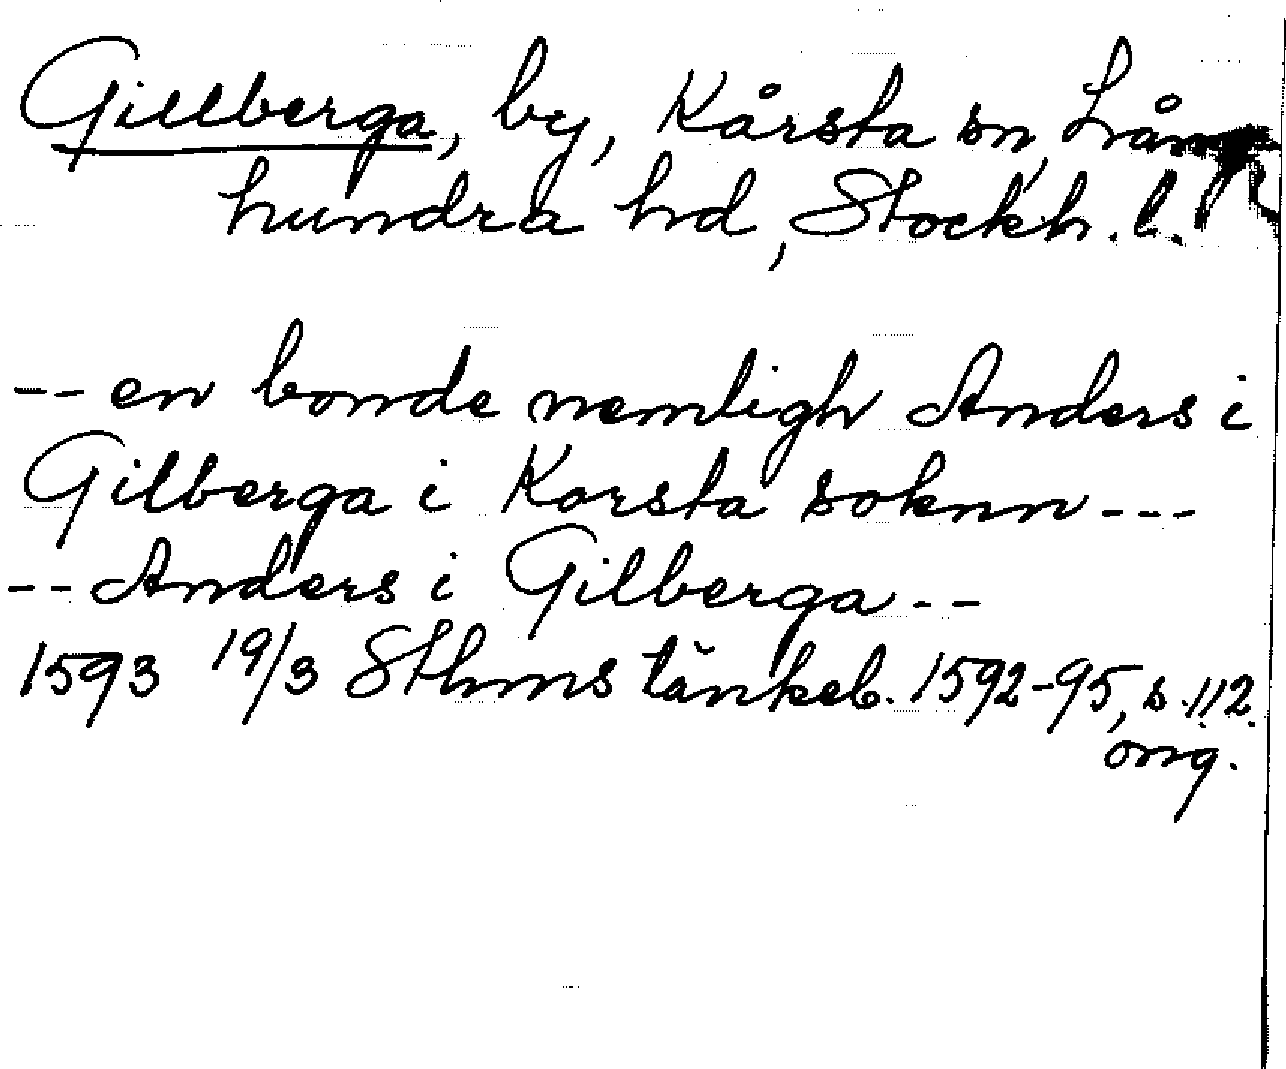 Gillberga, by, Kårsta sn, Lång
hundra hd, Stockh. l.
-- en bonde nemligh Anders i
Gilberga i Korsta soknn ---
-- Anders i Gilberga --
1593 19/3 Sthms tänkeb. 1592-95, s. 112.
orig.